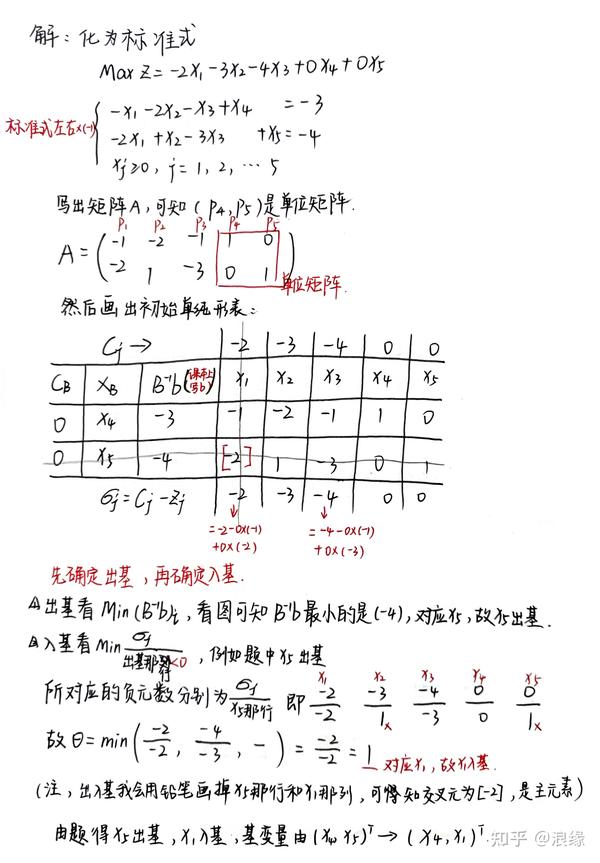 解：化为标准式
Max Z = -2x₁-3x₂-4x₃+0x₄+0x₅
标准式左右×(-1)
-x₁-2x₂-x₃+x₄ = -3
-2x₁+x₂-3x₃ +x₅=-4
xⱼ≥0, j=1,2,…5
写出矩阵A,可知(P₄,P₅)是单位矩阵.
P₁ P₂ P₃ P₄ P₅
A= -1 -2 -1 1 0
-2 1 -3 0 1
单位矩阵.
然后画出初始单纯形表:
Cⱼ→ -2 -3 -4 0 0
C_B X_B B⁻¹b(课本上写b) x₁ x₂ x₃ x₄ x₅
0 x₄ -3 -1 -2 -1 1 0
0 x₅ -4 [-2] 1 -3 0 1
σⱼ=Cⱼ-Zⱼ -2 -3 -4 0 0
=-2-0×(-1) =-4-0×(-1)
+0×(-2) +0×(-3)
先确定出基,再确定入基.
出基看Min(B⁻¹b)ᵢ,看图可知B⁻¹b最小的是(-4),对应x₅,故x₅出基.
入基看Min σⱼ/出基那行<0,例如题中x₅出基
x₁ x₂ x₃ x₄ x₅
所对应的负元数分别为 σⱼ/x₅那行 即 -2/-2 -3/1× -4/-3 0/0 0/1×
故θ=min(-2/-2, -4/-3, -)=-2/-2=1 对应x₁,故x₁入基.
(注,出入基我会用铅笔画掉x₅那行和x₁那列,可得知交叉元为[-2],是主元素)
由题得x₅出基,x₁入基,基变量由(x₄,x₅)ᵀ→(x₄,x₁)ᵀ.
知乎 @浪缘